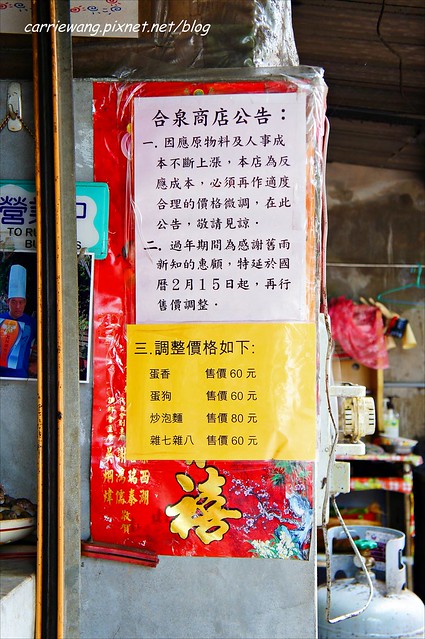 carriewang.pixnet.net/blog
合泉商店公告：
一．因應原物料及人事成
本不斷上漲，本店為反
應成本，必須再作適度
合理的價格微調，在此
公告，敬請見諒．
二．過年期間為感謝舊雨
新知的惠顧，特延於國
曆2月15日起，再行
售價調整．
三.調整價格如下:
蛋香 售價60元
蛋狗 售價60元
炒泡麵 售價80元
雜七雜八 售價60元
營業
TO RU
禧
西湖
瑞泰
鴻億
敬賀